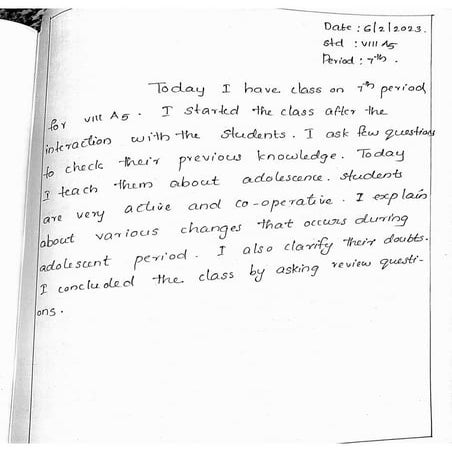 Date : 6/2/2023.
std : VIII A5
Period : 7th.
Today I have class on 7th period
for VIII A5 . I started the class after the
interaction with the students . I ask few questions
to check their previous knowledge . Today
I teach them about adolescence. students
are very active and co-operative . I explain
about various changes that occurs during
adolescent period . I also clarify their doubts.
I concluded the class by asking review questi-
ons .